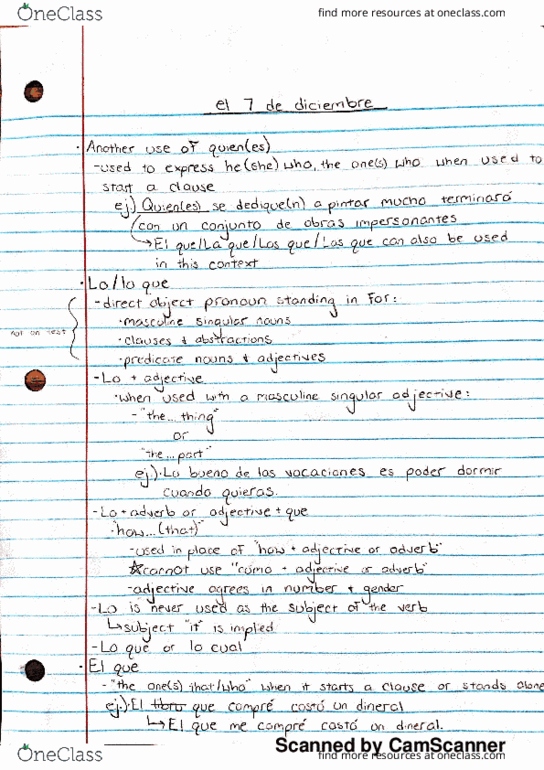 OneClass
find more resources at oneclass.com
el 7 de diciembre
· Another use of quien(es)
- used to express he(she) who, the one(s) who when used to
start a clause
ej.) Quien(es) se dedique(n) a pintar mucho terminará
con un conjunto de obras impersonantes
↳ El que/La que/Los que/Las que can also be used
in this context
· Lo/lo que
- direct object pronoun standing in for:
· masculine singular nouns
not on test
· clauses & abstractions
· predicate nouns & adjectives
- Lo + adjective
· when used with a masculine singular adjective:
- "the... thing"
or
"the... part"
ej.) · Lo bueno de las vacaciones es poder dormir
cuando quieras.
- Lo + adverb or adjective + que
· "how... (that)"
- used in place of "how + adjective or adverb"
☆ cannot use "cómo + adjective or adverb"
- adjective agrees in number & gender
- Lo is never used as the subject of the verb
↳ subject "it" is implied
- Lo que or lo cual
· El que
- "the one(s) that/who" when it starts a clause or stands alone
ej.) · El libro que compré costó un dineral
↳ El que me compré costó un dineral.
Scanned by CamScanner
OneClass
find more resources at oneclass.com